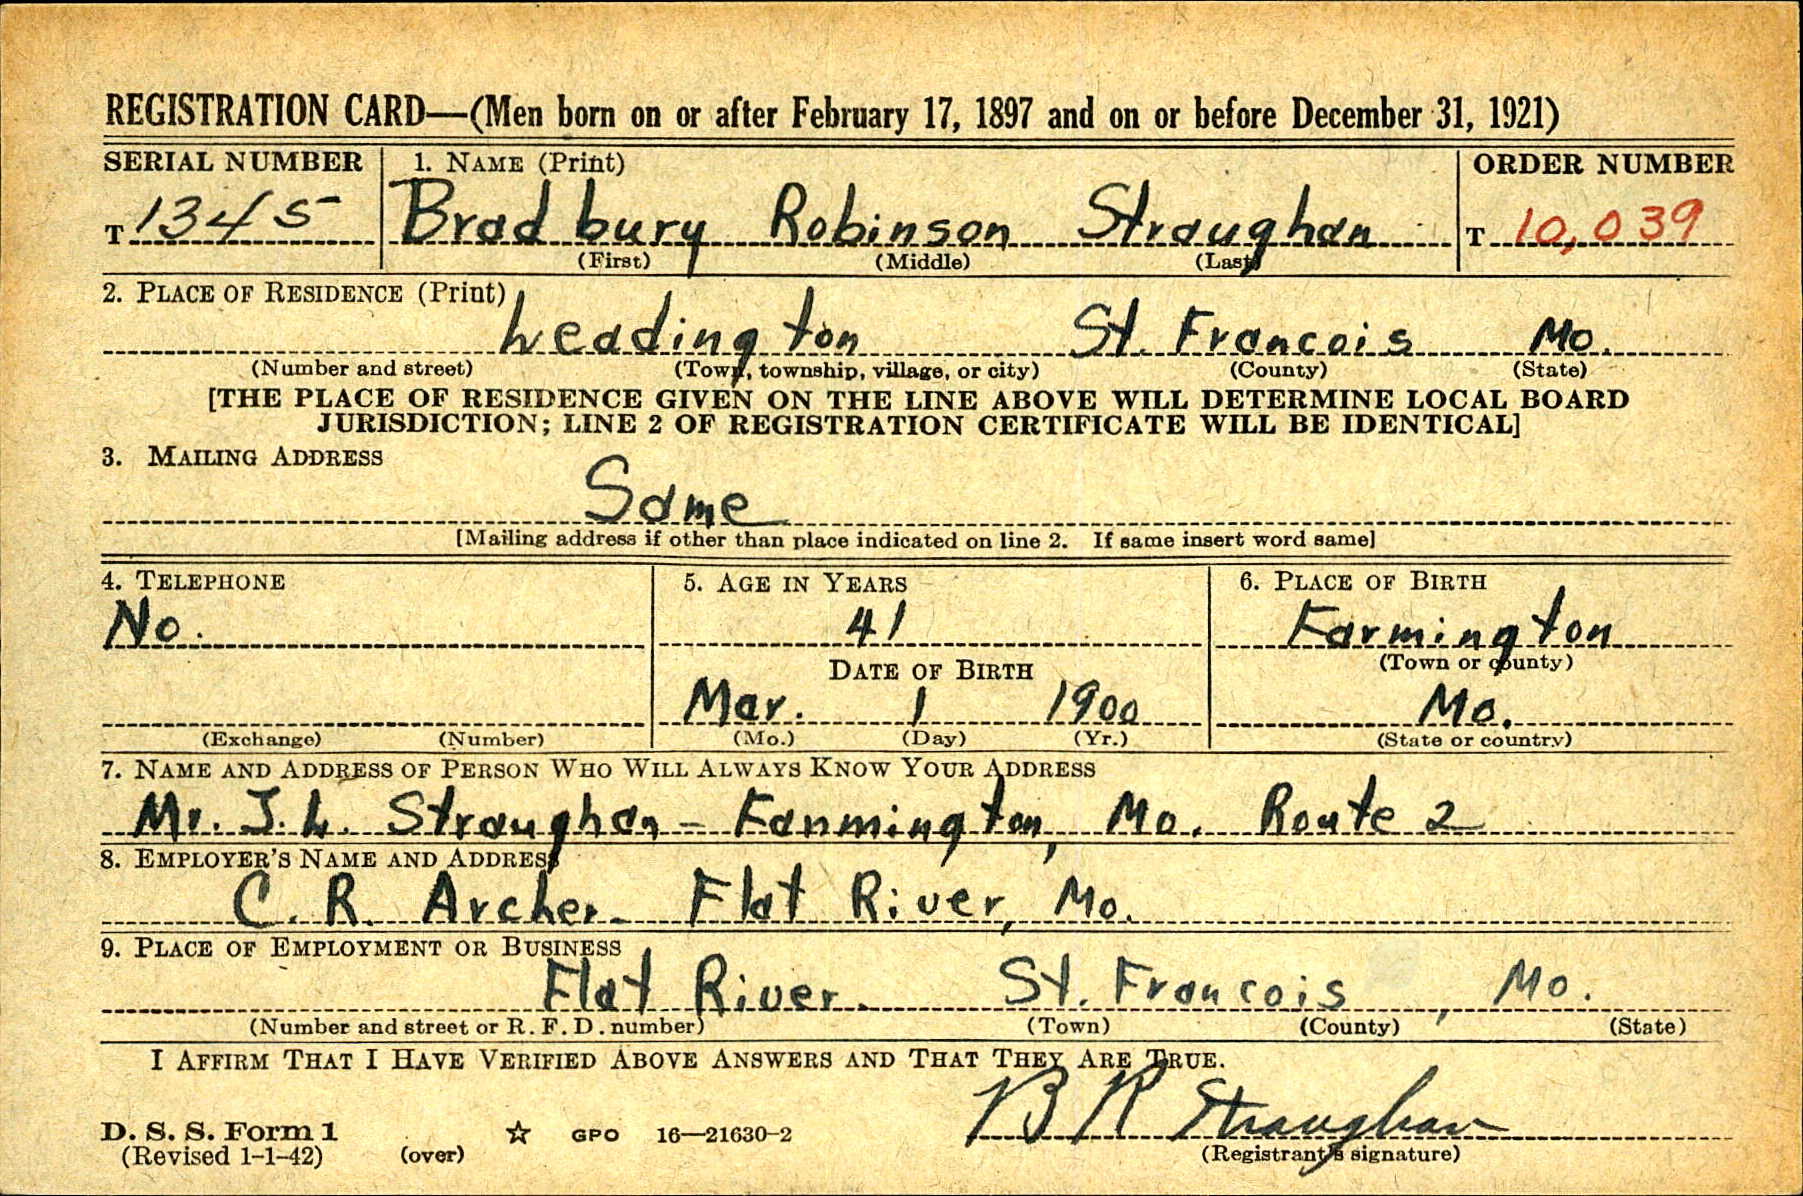 REGISTRATION CARD—(Men born on or after February 17, 1897 and on or before December 31, 1921)
SERIAL NUMBER 1. NAME (Print) ORDER NUMBER
T 1345 Bradbury Robinson Straughan T 10,039
(First) (Middle) (Last)
2. PLACE OF RESIDENCE (Print)
Leadington St. Francois Mo.
(Number and street) (Town, township, village, or city) (County) (State)
[THE PLACE OF RESIDENCE GIVEN ON THE LINE ABOVE WILL DETERMINE LOCAL BOARD
JURISDICTION; LINE 2 OF REGISTRATION CERTIFICATE WILL BE IDENTICAL]
3. MAILING ADDRESS
Same
[Mailing address if other than place indicated on line 2. If same insert word same]
4. TELEPHONE 5. AGE IN YEARS 6. PLACE OF BIRTH
No. 41 Farmington
DATE OF BIRTH (Town or county)
Mar. 1 1900 Mo.
(Exchange) (Number) (Mo.) (Day) (Yr.) (State or country)
7. NAME AND ADDRESS OF PERSON WHO WILL ALWAYS KNOW YOUR ADDRESS
Mr. J. L. Straughan - Fanmington, Mo. Route 2
8. EMPLOYER'S NAME AND ADDRESS
C. R. Archer. Flat River, Mo.
9. PLACE OF EMPLOYMENT OR BUSINESS
Flat River. St. Francois, Mo.
(Number and street or R. F. D. number) (Town) (County) (State)
I AFFIRM THAT I HAVE VERIFIED ABOVE ANSWERS AND THAT THEY ARE TRUE.
B R Straughan
D. S. S. Form 1 ☆ GPO 16—21630-2
(Revised 1-1-42) (over) (Registrant's signature)